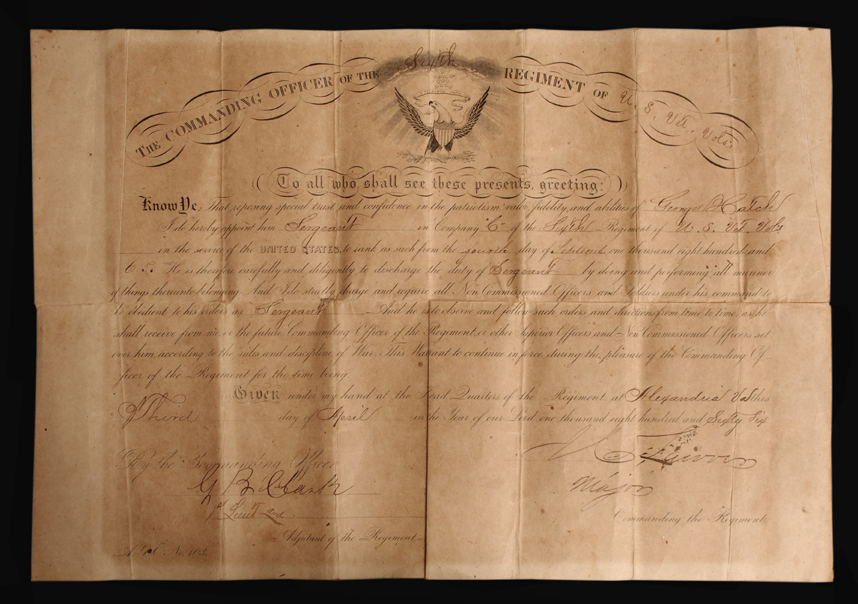 THE COMMANDING OFFICER OF THE Sixth REGIMENT OF U. S. Vet. Vols.
To all who shall see these presents, greeting:
Know Ye, That reposing special trust and confidence in the patriotism, valor, fidelity, and abilities of George
I do hereby appoint him Sergeant in Company "C" of the Sixth Regiment of U. S. Vet. Vols
in the service of the UNITED STATES, to rank as such from the day of one thousand eight hundred and
He is therefore carefully and diligently to discharge the duty of Sergeant by doing and performing all manner
of things thereunto belonging. And I do strictly charge and require all Non-Commissioned Officers and Soldiers under his command to
be obedient to his orders as Sergeant. And he is to observe and follow such orders and directions from time to time, as he
shall receive from me, or the future Commanding Officer of the Regiment, or other Superior Officers and Non-Commissioned Officers set
over him, according to the rules and discipline of War. This Warrant to continue in force during the pleasure of the Commanding Of-
ficer of the Regiment for the time being.
Given under my hand at the Head Quarters of the Regiment, at Alexandria Va this
Third day of April in the Year of our Lord one thousand eight hundred and Sixty Six
By the Commanding Officer
G B Clark
Major
1st Lieut and
Commanding the Regiment.
Adjutant of the Regiment.
A. G. O. No.